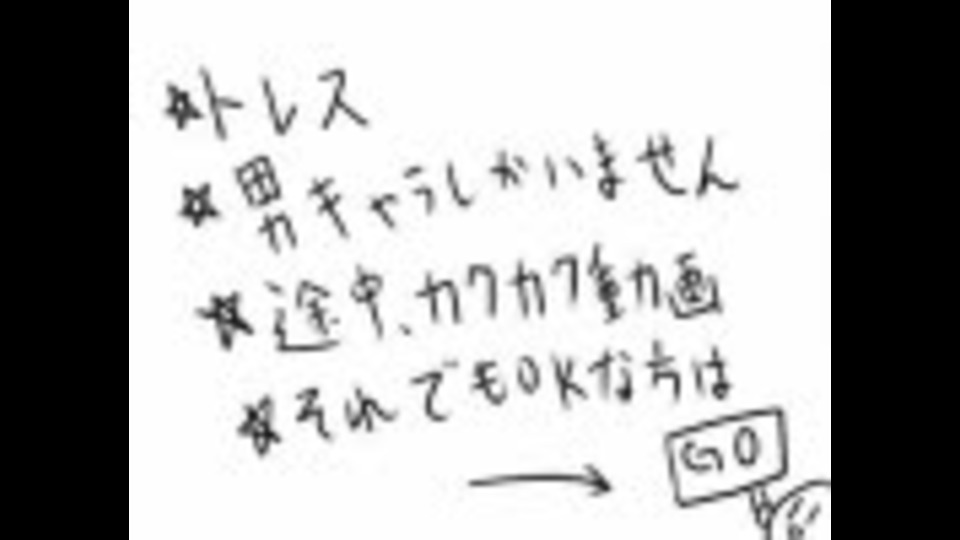 ★トレス
★男キャラしかいません
★途中、カクカク動画
★それでもOKな方は
→ GO